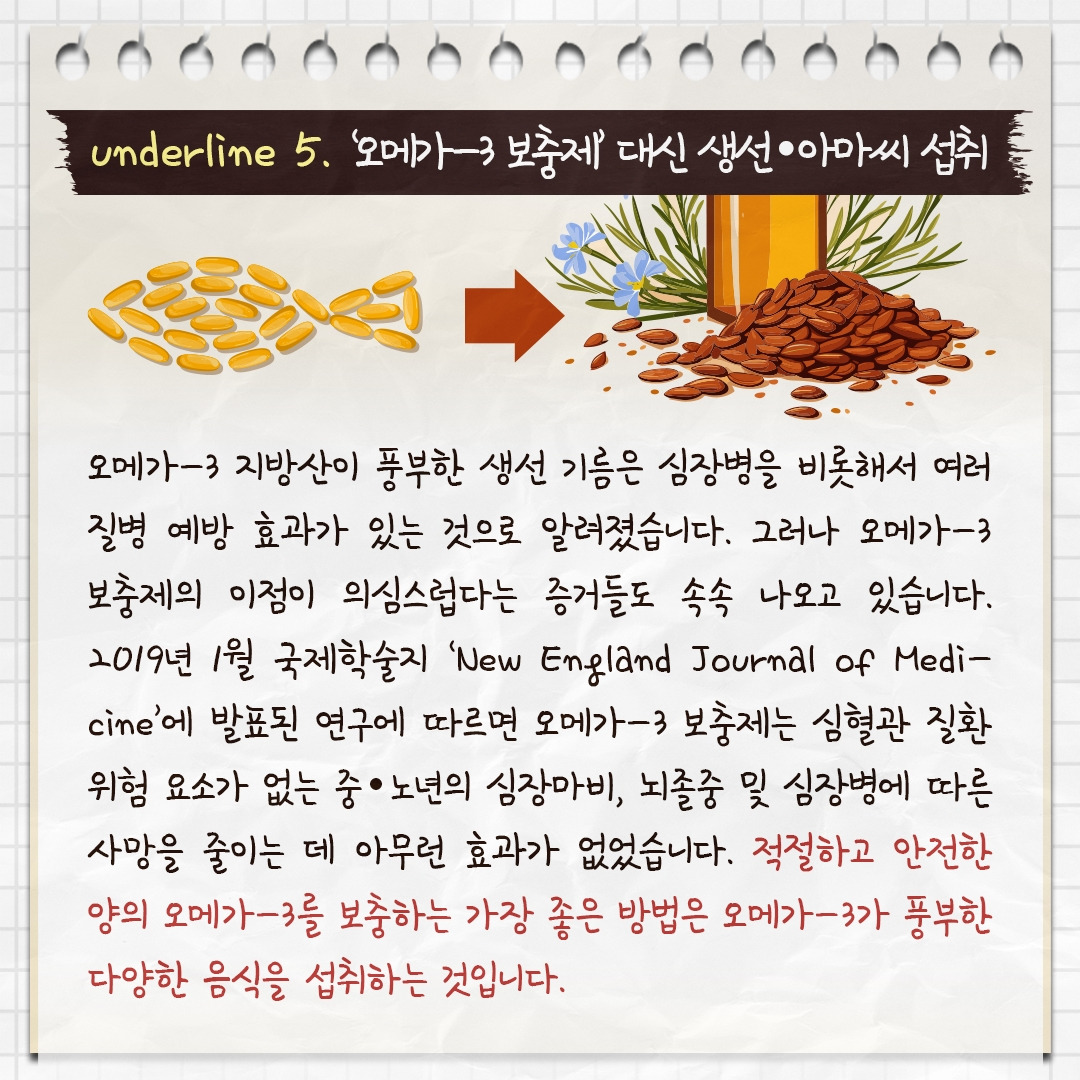 underline 5. '오메가-3 보충제' 대신 생선•아마씨 섭취
오메가-3 지방산이 풍부한 생선 기름은 심장병을 비롯해서 여러
질병 예방 효과가 있는 것으로 알려졌습니다. 그러나 오메가-3
보충제의 이점이 의심스럽다는 증거들도 속속 나오고 있습니다.
2019년 1월 국제학술지 'New England Journal of Medi-
cine'에 발표된 연구에 따르면 오메가-3 보충제는 심혈관 질환
위험 요소가 없는 중•노년의 심장마비, 뇌졸중 및 심장병에 따른
사망을 줄이는 데 아무런 효과가 없었습니다. 적절하고 안전한
양의 오메가-3를 보충하는 가장 좋은 방법은 오메가-3가 풍부한
다양한 음식을 섭취하는 것입니다.